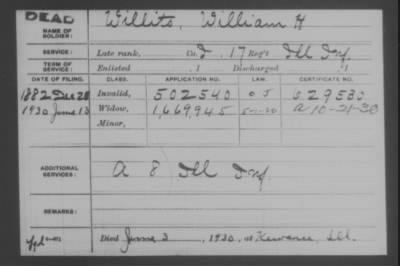 DEAD
NAME OF SOLDIER: Willits, William H
SERVICE: Late rank, Co. I, 17 Reg't Ill Inf.
TERM OF SERVICE: Enlisted , 1 Discharged , 1
DATE OF FILING. CLASS. APPLICATION NO. LAW. CERTIFICATE NO.
1882 Dec 28 Invalid, 502540 O J 629580
1930 June 13 Widow, 1,669,945 5-1-20 A 10-21-30
Minor,
ADDITIONAL SERVICES: A 8 Ill Inf.
REMARKS:
Died June 3, 1930, at Kewanee Ill.